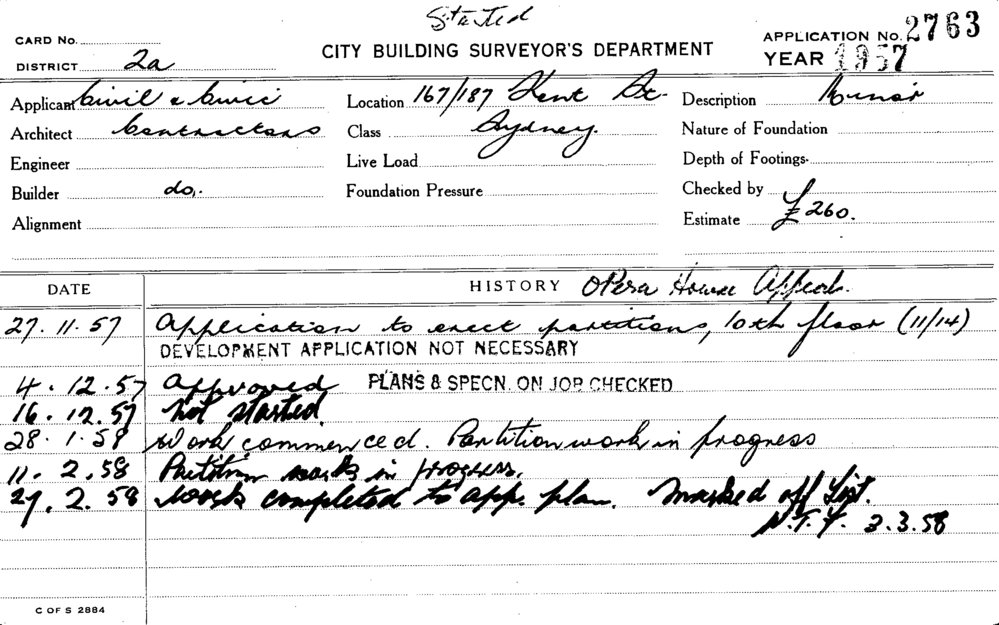 Started
CARD No.
CITY BUILDING SURVEYOR'S DEPARTMENT
APPLICATION No. 2763
DISTRICT 2a
YEAR 1957
Applicant Civil & Civic
Location 167/187 Kent St.
Description Minor
Architect Contractors
Class Sydney.
Nature of Foundation
Engineer
Live Load
Depth of Footings
Builder do.
Foundation Pressure
Checked by
Alignment
Estimate £260.
DATE
HISTORY Opera House Appeal.
27.11.57 Application to erect partitions, 10th floor (11/14)
DEVELOPMENT APPLICATION NOT NECESSARY
4.12.57 Approved PLANS & SPECN. ON JOB CHECKED
16.12.57 Not started.
28.1.58 Work commenced. Partition work in progress
11.2.58 Partition works in progress.
27.2.58 Work completed to app. plan. Marked off List.
N.T.F. 3.3.58
C OF S 2884